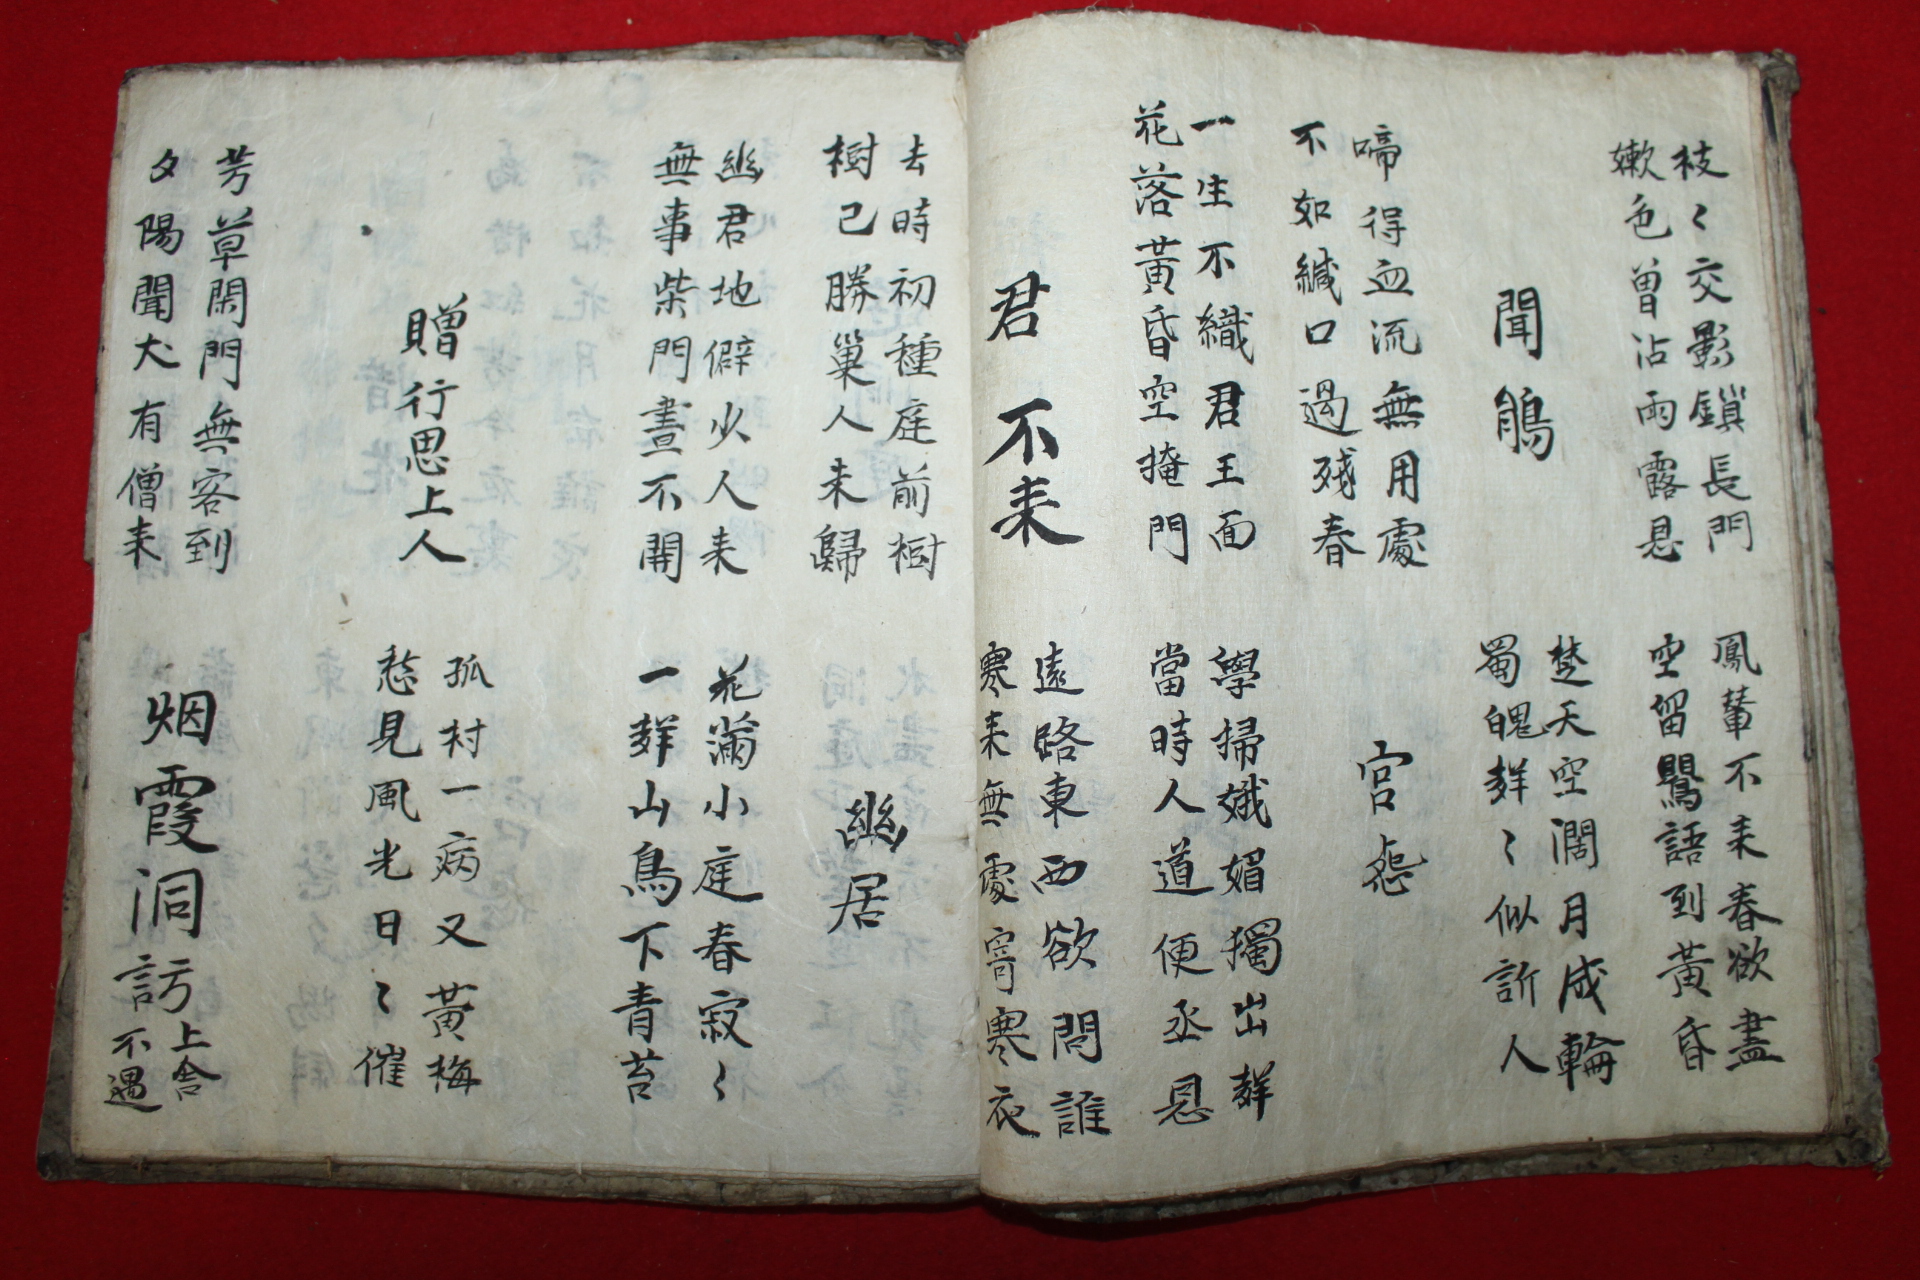 枝〻交影鎖長門
嫩色曾沾雨露恩
鳳輦不来春欲盡
空留鸎語到黃昏
聞鵑
楚天空濶月成輪
蜀魄群〻似訴人
啼得血流無用處
不如緘口過殘春
宮怨
一生不織君王面
花落黃昏空掩門
學掃娥媚獨出群
當時人道便丞恩
君不来
遠路東西欲問誰
寒来無處寄寒衣
去時初種庭前樹
樹已勝巢人未歸
幽居
幽君地僻少人来
無事柴門晝不開
花滿小庭春寂〻
一群山鳥下青苔
贈行思上人
孤村一病又黃梅
愁見風光日〻催
芳草閑門無客到
夕陽聞犬有僧来
烟霞洞訪上舍
不遇